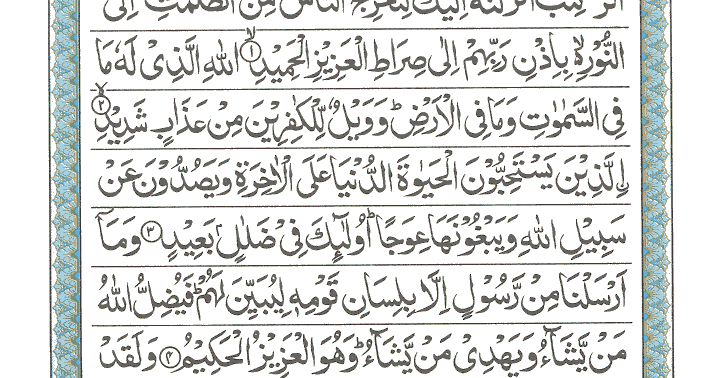 الٓرٰ كِتٰبٌ اَنْزَلْنٰهُ اِلَيْكَ لِتُخْرِجَ النَّاسَ مِنَ الظُّلُمٰتِ اِلَى
النُّوْرِ ۙ۬ بِاِذْنِ رَبِّهِمْ اِلٰى صِرَاطِ الْعَزِيْزِ الْحَمِيْدِ ۙ﴿۱﴾ اللّٰهِ الَّذِيْ لَهٗ مَا
فِى السَّمٰوٰتِ وَمَا فِى الْاَرْضِ ؕ وَوَيْلٌ لِّلْكٰفِرِيْنَ مِنْ عَذَابٍ شَدِيْدِ ۙ﴿۲﴾
اۨلَّذِيْنَ يَسْتَحِبُّوْنَ الْحَيٰوةَ الدُّنْيَا عَلَى الْاٰخِرَةِ وَيَصُدُّوْنَ عَنْ
سَبِيْلِ اللّٰهِ وَيَبْغُوْنَهَا عِوَجًا ؕ اُولٰٓئِكَ فِيْ ضَلٰلٍۭ بَعِيْدٍ ﴿۳﴾ وَمَاۤ
اَرْسَلْنَا مِنْ رَّسُوْلٍ اِلَّا بِلِسَانِ قَوْمِهٖ لِيُبَيِّنَ لَهُمْ ؕ فَيُضِلُّ اللّٰهُ
مَنْ يَّشَآءُ وَيَهْدِيْ مَنْ يَّشَآءُ ؕ وَهُوَ الْعَزِيْزُ الْحَكِيْمُ ﴿۴﴾ وَلَقَدْ